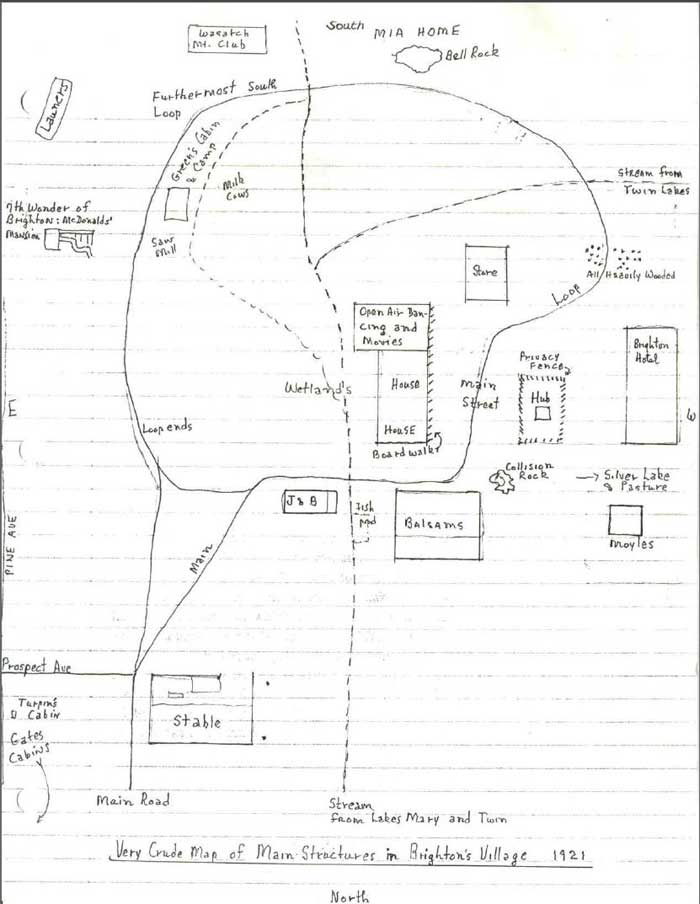 South
Wasatch
Mt. Club
MIA HOME
Bell Rock
Launers
Furthermost South
Loop
Green's Cabin
& Camp
Milk
Cows
Stream from
Twin Lakes
7th Wonder of
Brighton: McDonalds'
Mansion
Saw
Mill
Store
All Heavily Wooded
Loop
Open Air Dan-
cing and
Movies
Brighton
Hotel
Privacy
Fence
House
Main
Street
Hub
Wetland's
E
W
Loop ends
House
Board walk
Collision
Rock
→ Silver Lake
& Pasture
J & B
Fish
pond
Balsams
Moyles
PINE AVE
Main
Prospect Ave
Turpin's
Cabin
Stable
Gates
Cabins
Main Road
Stream
from Lakes Mary and Twin
Very Crude Map of Main Structures in Brighton's Village 1921
North